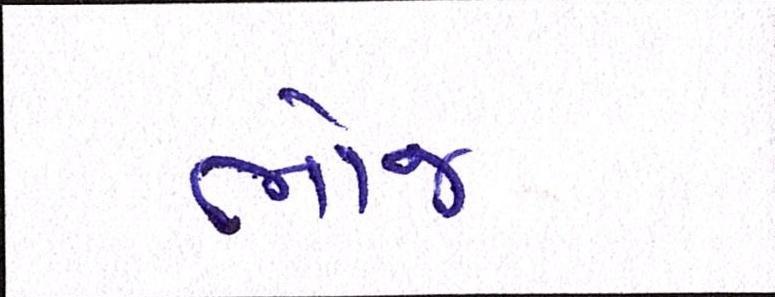 ભોજ